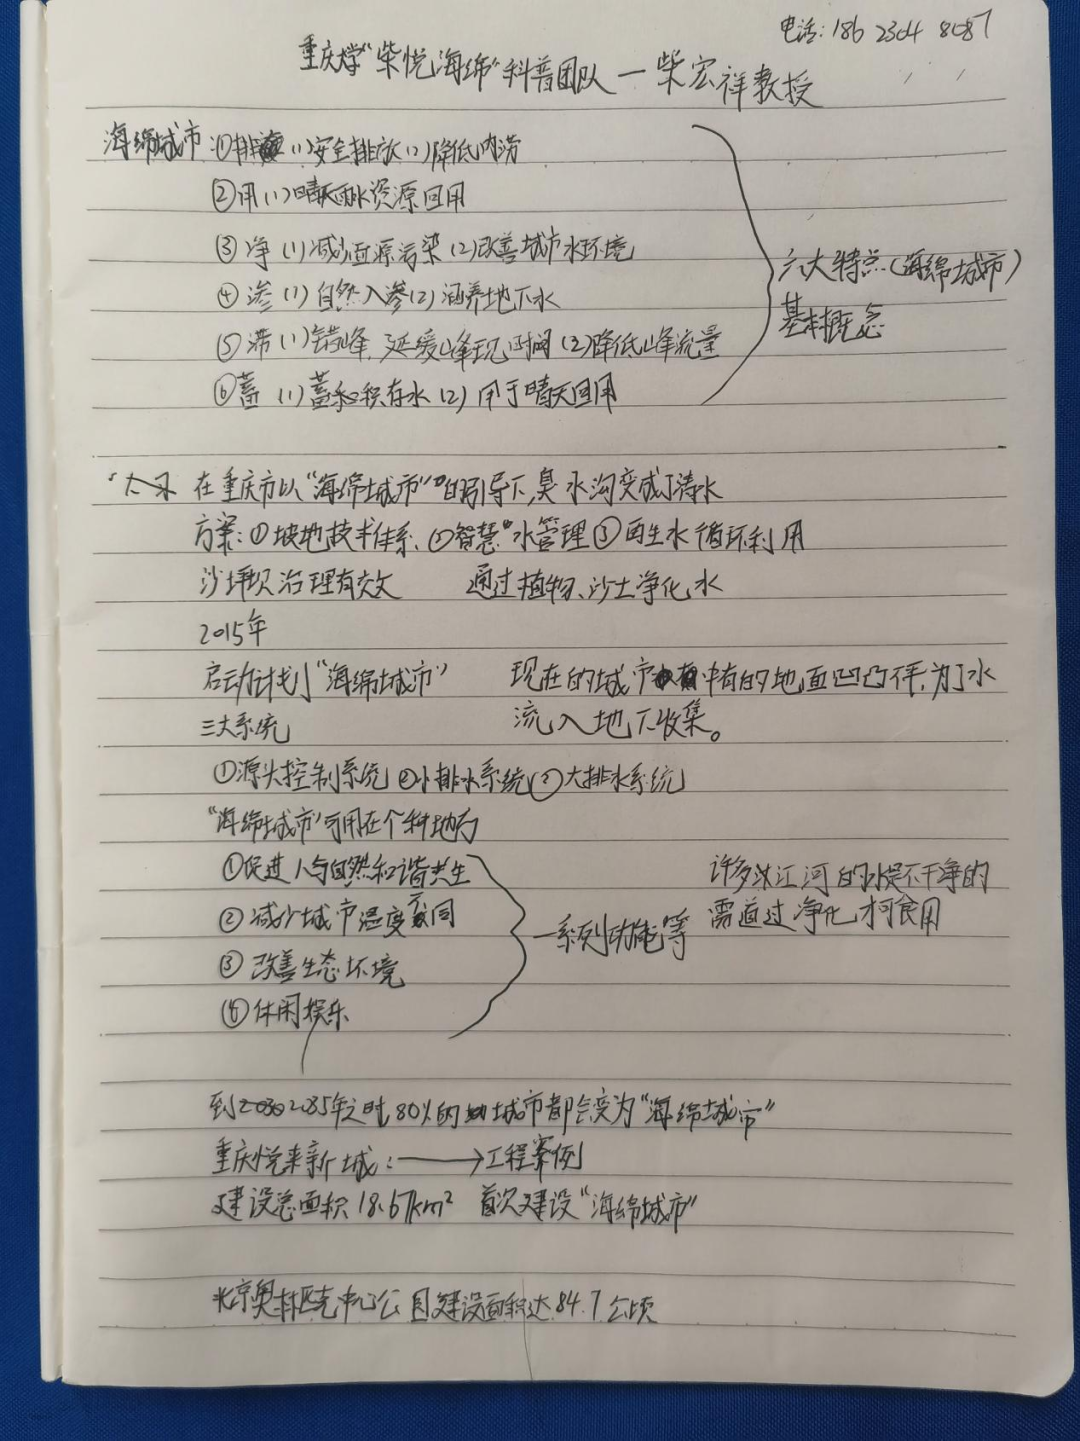 电话: 186 2304 8087
重庆大学"柴悦海绵"科普团队 — 柴宏祥教授
海绵城市:①排 (1)安全排放(2)降低内涝
②用(1)晴天雨水资源回用
③净 (1)减少面源污染(2)改善城市水环境
④渗 (1)自然入渗(2)涵养地下水
⑤滞 (1)错峰,延缓峰现时间(2)降低峰流量
⑥蓄 (1)蓄积存水(2)用于晴天回用
六大特点(海绵城市)
基本概念
在重庆市以"海绵城市"的引导下,臭水沟变成了清水
方案:①坡地技术体系、②智慧"水管理③再生水循环利用
沙坪坝治理有效 通过植物、沙土净化水
2015年
启动计划"海绵城市" 现在的城市中有的地面凹凸不平,为了水
三大系统 流入地下收集。
①源头控制系统②小排水系统③大排水系统
"海绵城市"可用在个种地方
①促进人与自然和谐共生
②减少城市温度不同
③改善生态环境
④休闲娱乐
一系列功能等
许多江河的水是不干净的
需通过净化才可食用
到2035年之时,80%的城市都会变为"海绵城市"
重庆悦来新城:⟶工程案例
建设总面积18.67km² 首次建设"海绵城市"
北京奥林匹克中心公园建设面积达84.7公顷